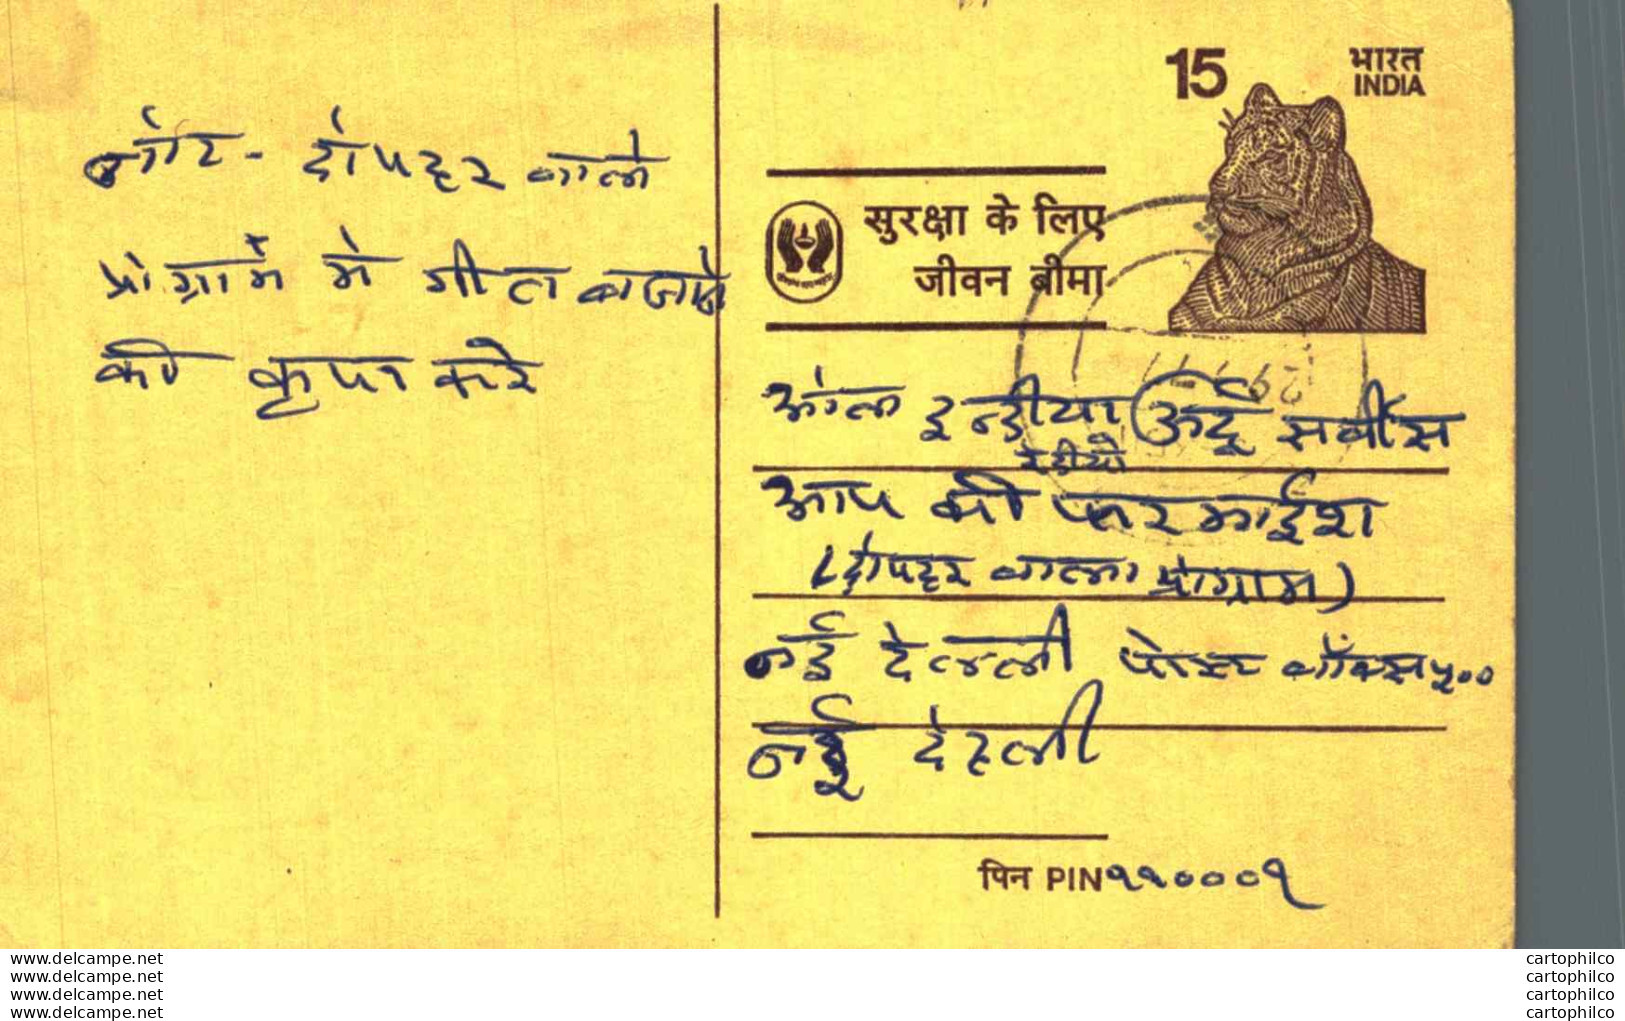 नोट - दोपहर वाले
प्रोग्राम मे गीत बजाने
की कृपा करे
15
भारत
INDIA
सुरक्षा के लिए
जीवन बीमा
ओल इन्डीया (ऊर्दू सर्वीस
रेडीयो
आप की फरमाईश
(दोपहर वाला प्रोग्राम)
नई देलली पोस्ट बॉक्स ५००
नई देहली
पिन PIN ११०००१
www.delcampe.net
www.delcampe.net
www.delcampe.net
www.delcampe.net
cartophilco
cartophilco
cartophilco
cartophilco